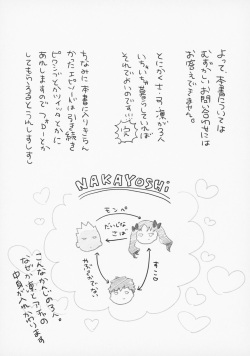 よって、本書については
むずかしいお問い合わせには
お答えできません。
とにかく士・弓・凛が3人
いちゃいちゃ暮らしていれば
それでよいのです…
ちなみに本書に入りきらん
かったエピソードは引き続き
ピクシブとかツイッタとかに
あれしますのでフォローとか
してもらえるとうれしすしすし
NAKAYOSHi
モンペ
だいじな
さば
すこ
こんなかんじの3人。
なぜか凛とアーチャの
中身が入れかわります